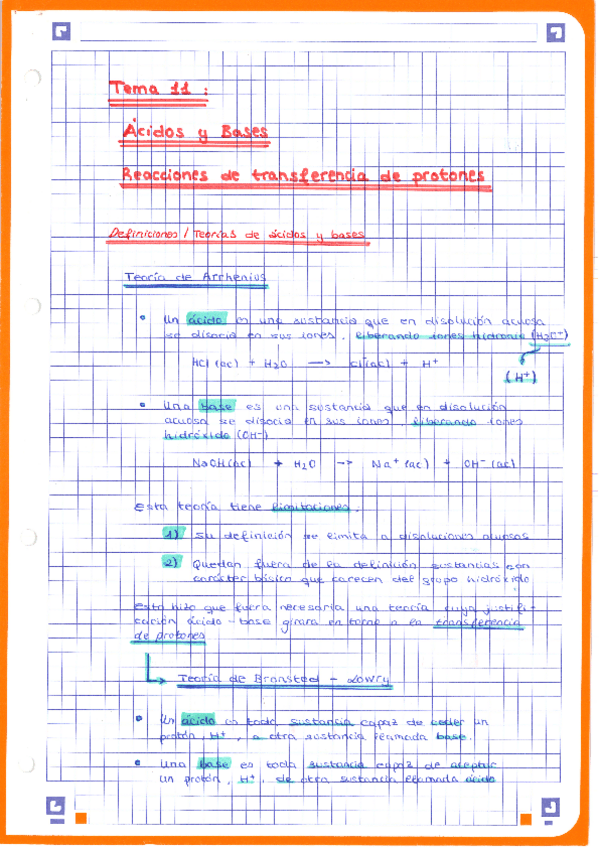 Tema 11 :
Ácidos y Bases
Reacciones de transferencia de protones
Definiciones / Teorías de ácidos y bases
Teoría de Arrhenius
• Un ácido es una sustancia que en disolución acuosa
se disocia en sus iones, liberando iones hidronio (H₃O⁺)
HCl (ac) + H₂O → Cl⁻(ac) + H⁺
(H⁺)
• Una base es una sustancia que en disolución
acuosa se disocia en sus iones, liberando iones
hidróxido (OH⁻)
NaOH(ac) + H₂O → Na⁺ (ac) + OH⁻ (ac)
Esta teoría tiene limitaciones.
1) Su definición se limita a disoluciones acuosas
2) Quedan fuera de la definición sustancias con
carácter básico que carecen del grupo hidróxido
Esto hizo que fuera necesaria una teoría cuya justifi-
cación ácido-base girara en torno a la transferencia
de protones
Teoría de Bronsted - Lowry
• Un ácido es toda sustancia capaz de ceder un
protón, H⁺, a otra sustancia llamada base.
• Una base es toda sustancia capaz de aceptar
un protón, H⁺, de otra sustancia llamada ácido